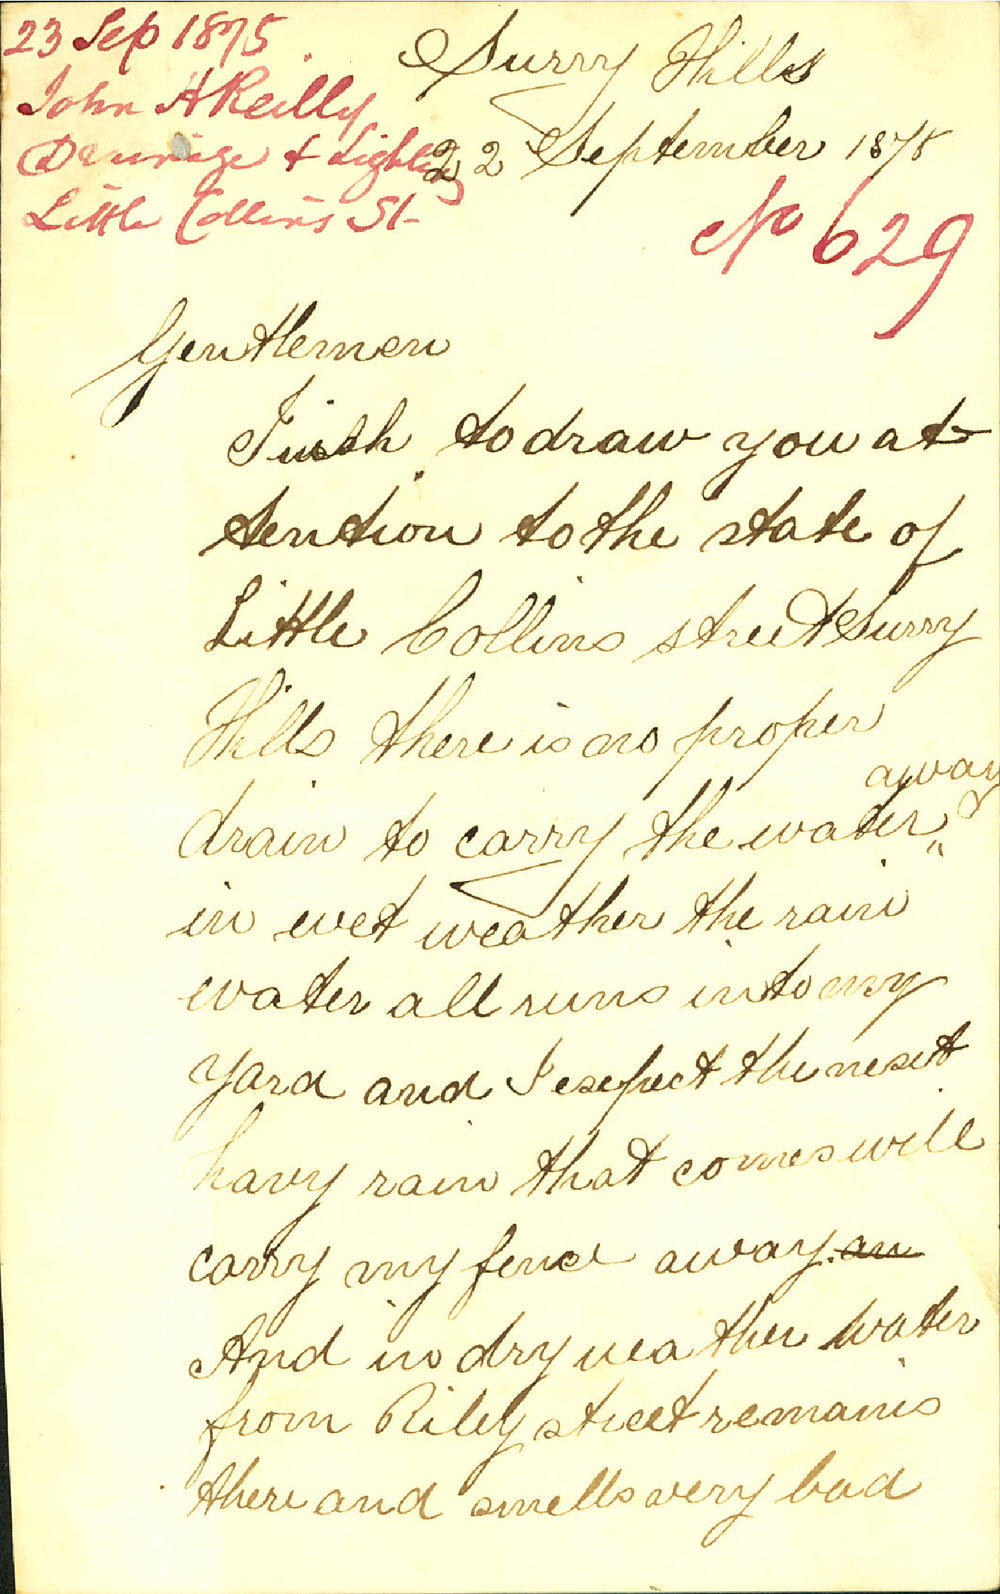 23 Sep 1875
John H Reilly
Drainage & Lighting
Little Collins St
No 629
Surry Hills
22 September 1875
Gentlemen
I wish to draw you at
tention to the state of
Little Collins street Surry
Hills there is no proper
drain to carry the water away
in wet weather the rain
water all runs into my
yard and I expect the next
havy rain that comes will
carry my fence away. an
And in dry weather water
from Riley street remains
there and smells very bad